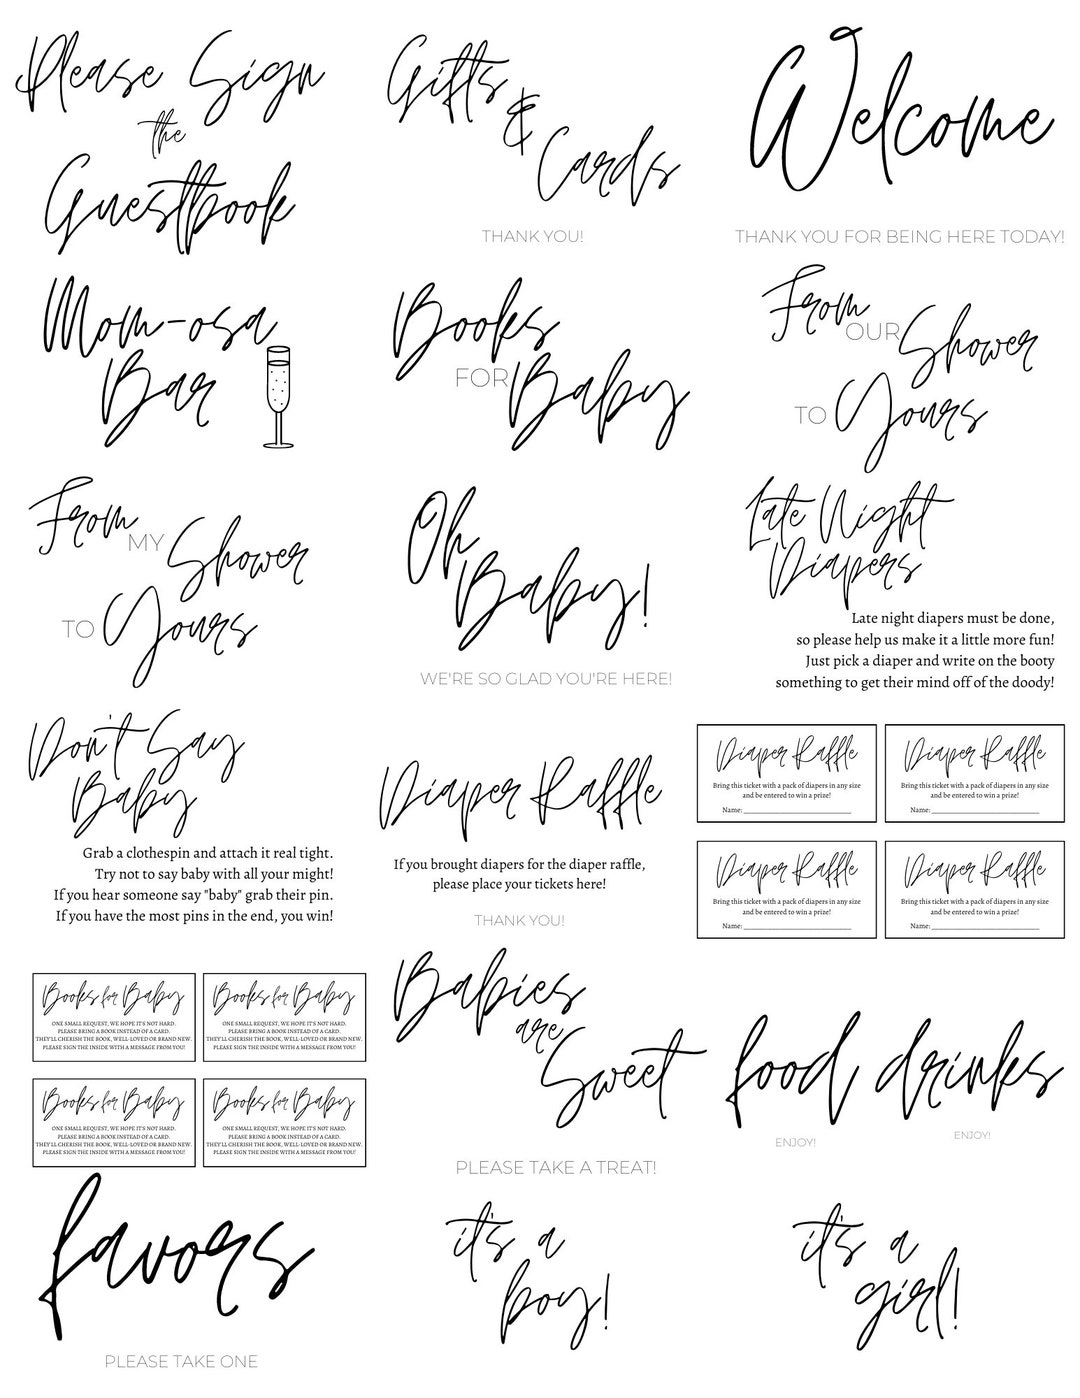 Please Sign
the
Guestbook
Gifts
&
Cards
THANK YOU!
Welcome
THANK YOU FOR BEING HERE TODAY!
Mom-osa
Bar
Books
FOR Baby
From
OUR Shower
TO Yours
From
MY Shower
TO Yours
Oh
Baby!
WE'RE SO GLAD YOU'RE HERE!
Late Night
Diapers
Late night diapers must be done,
so please help us make it a little more fun!
Just pick a diaper and write on the booty
something to get their mind off of the doody!
Don't Say
Baby
Grab a clothespin and attach it real tight.
Try not to say baby with all your might!
If you hear someone say "baby" grab their pin.
If you have the most pins in the end, you win!
Diaper Raffle
If you brought diapers for the diaper raffle,
please place your tickets here!
THANK YOU!
Diaper Raffle
Bring this ticket with a pack of diapers in any size
and be entered to win a prize!
Name:
Diaper Raffle
Bring this ticket with a pack of diapers in any size
and be entered to win a prize!
Name:
Diaper Raffle
Bring this ticket with a pack of diapers in any size
and be entered to win a prize!
Name:
Diaper Raffle
Bring this ticket with a pack of diapers in any size
and be entered to win a prize!
Name:
Books for Baby
ONE SMALL REQUEST, WE HOPE IT'S NOT HARD.
PLEASE BRING A BOOK INSTEAD OF A CARD.
THEY'LL CHERISH THE BOOK, WELL-LOVED OR BRAND NEW.
PLEASE SIGN THE INSIDE WITH A MESSAGE FROM YOU!
Books for Baby
ONE SMALL REQUEST, WE HOPE IT'S NOT HARD.
PLEASE BRING A BOOK INSTEAD OF A CARD.
THEY'LL CHERISH THE BOOK, WELL-LOVED OR BRAND NEW.
PLEASE SIGN THE INSIDE WITH A MESSAGE FROM YOU!
Books for Baby
ONE SMALL REQUEST, WE HOPE IT'S NOT HARD.
PLEASE BRING A BOOK INSTEAD OF A CARD.
THEY'LL CHERISH THE BOOK, WELL-LOVED OR BRAND NEW.
PLEASE SIGN THE INSIDE WITH A MESSAGE FROM YOU!
Books for Baby
ONE SMALL REQUEST, WE HOPE IT'S NOT HARD.
PLEASE BRING A BOOK INSTEAD OF A CARD.
THEY'LL CHERISH THE BOOK, WELL-LOVED OR BRAND NEW.
PLEASE SIGN THE INSIDE WITH A MESSAGE FROM YOU!
Babies
are
Sweet
PLEASE TAKE A TREAT!
food
ENJOY!
drinks
ENJOY!
favors
PLEASE TAKE ONE
it's a
boy!
it's a
girl!